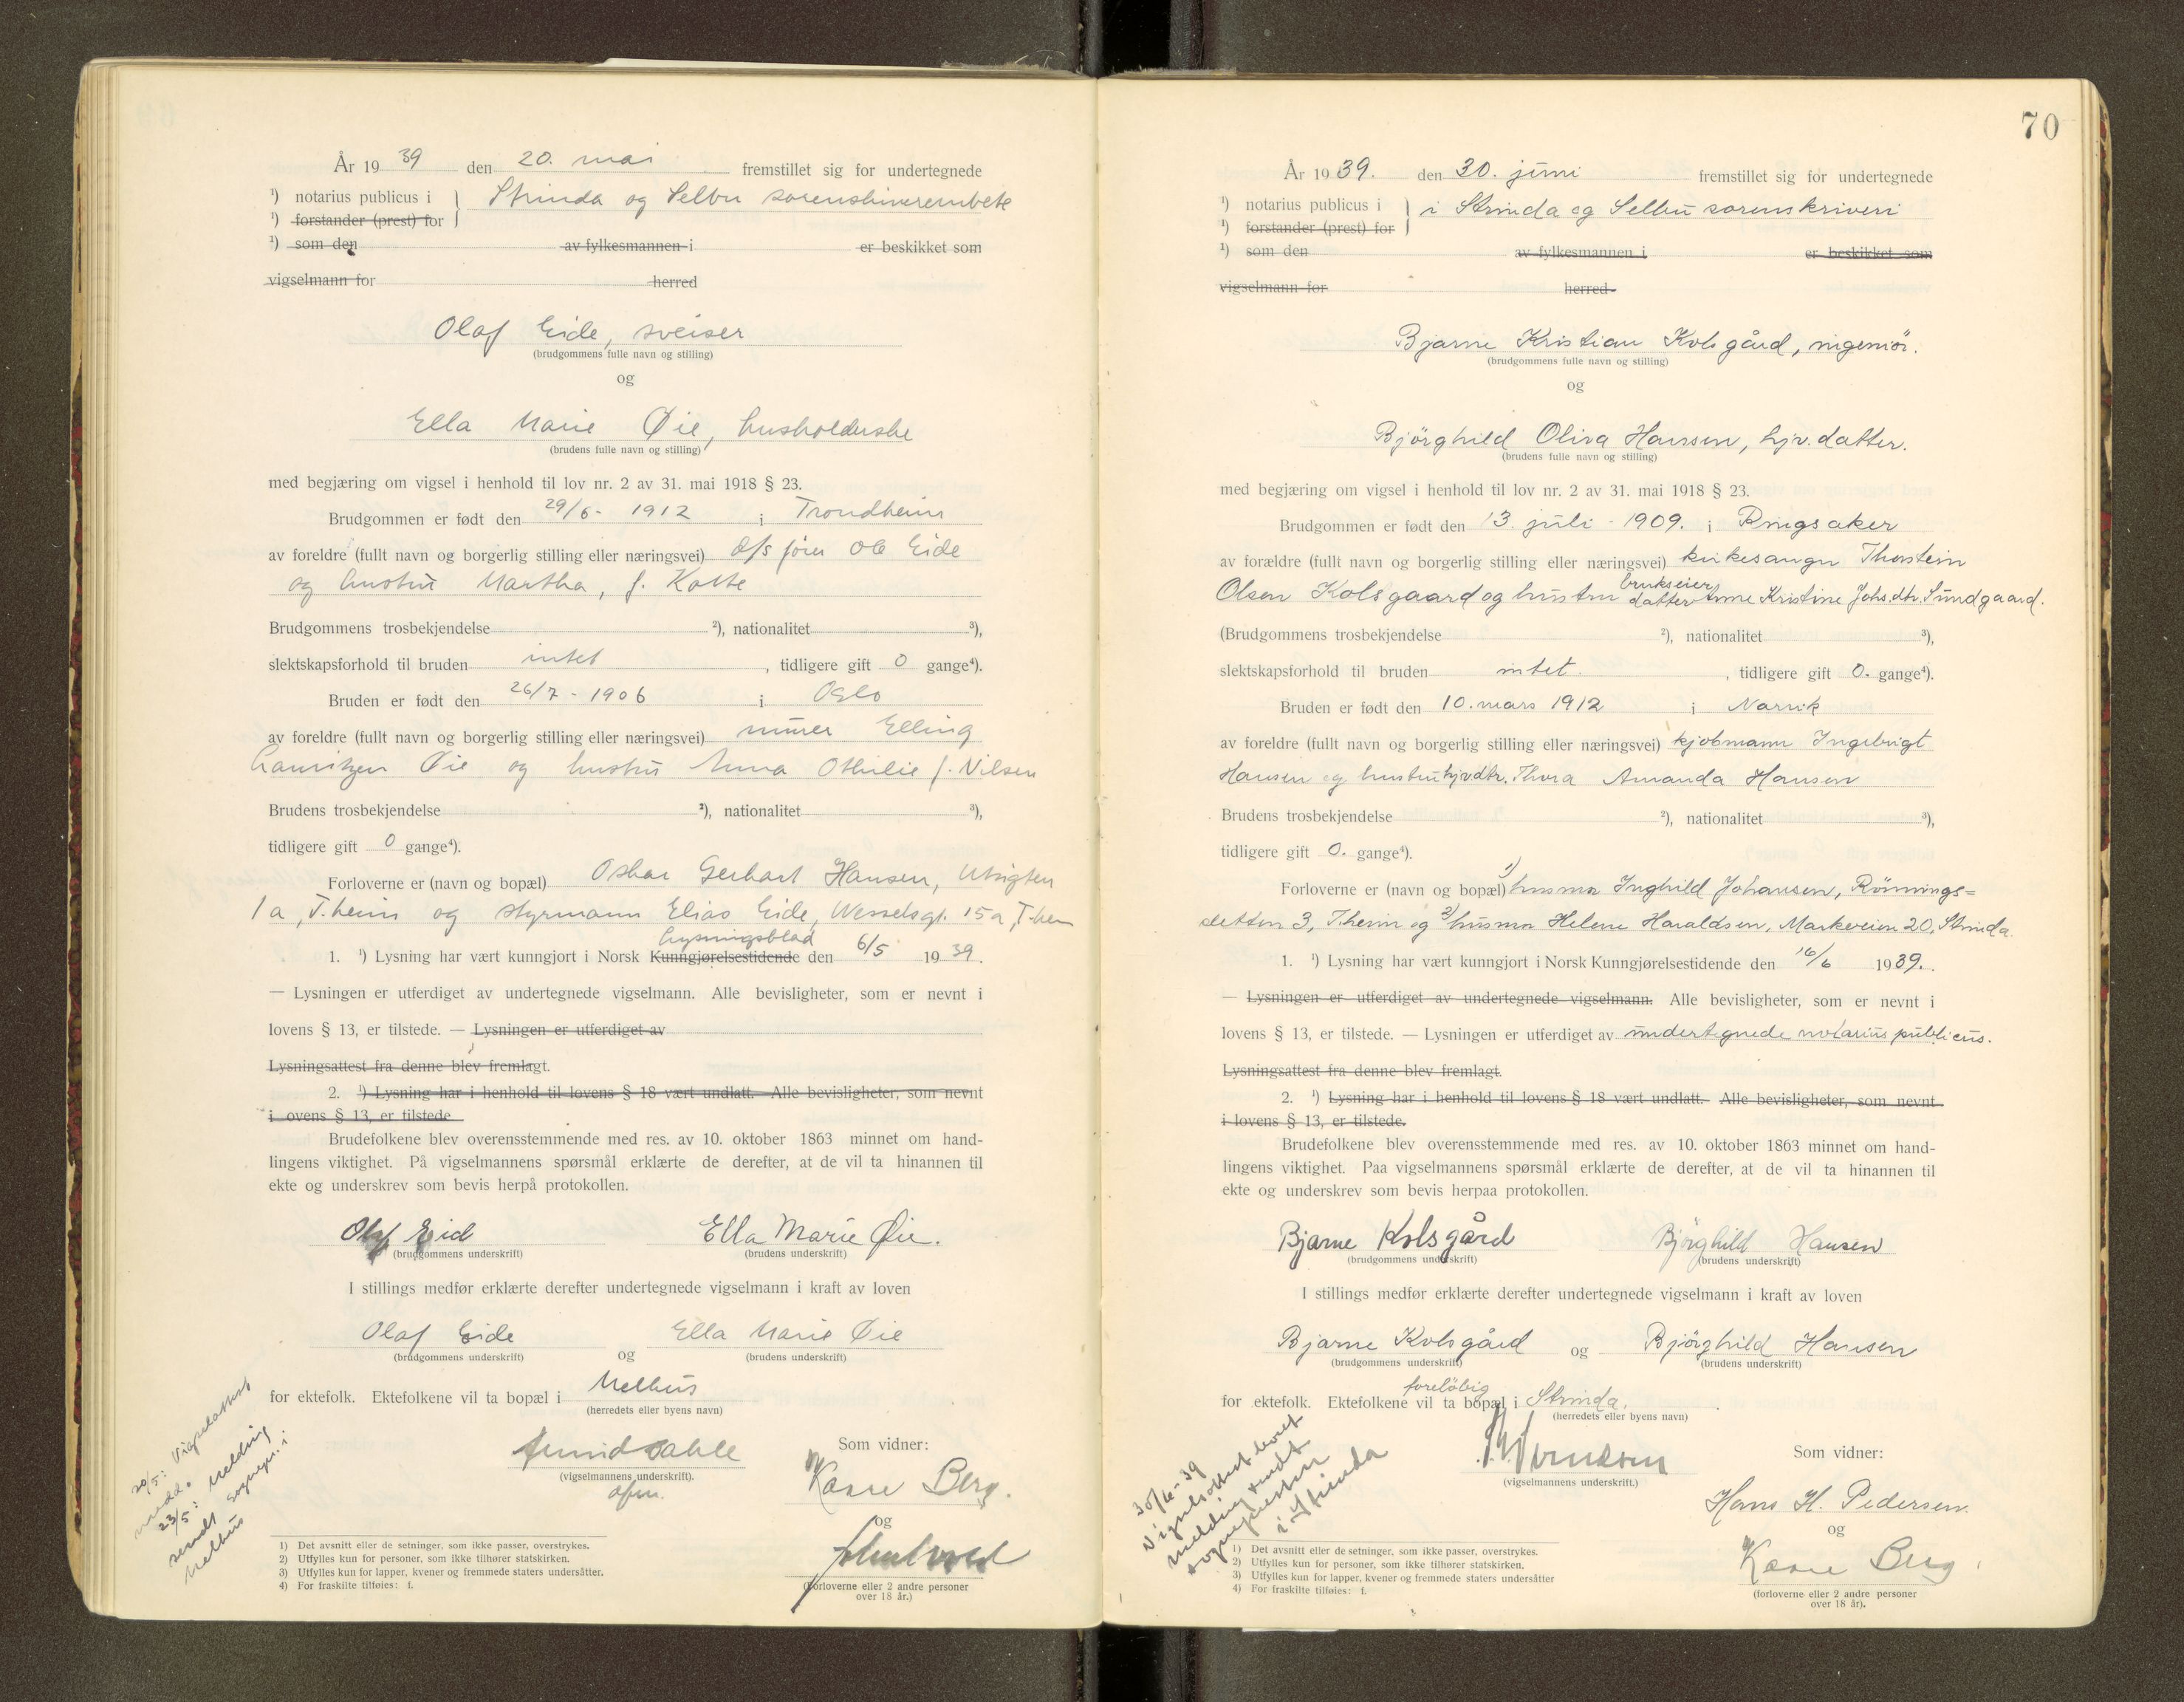 År 19 39 den 20. mai fremstillet sig for undertegnede
¹) notarius publicus i } Strinda og Selbu sorenskriverembete
¹) forstander (prest) for
¹) som den av fylkesmannen i er beskikket som
vigselmann for herred
Olaf Eide, sveiser
(brudgommens fulle navn og stilling)
og
Ella Marie Øie, husholderske
(brudens fulle navn og stilling)
med begjæring om vigsel i henhold til lov nr. 2 av 31. mai 1918 § 23.
Brudgommen er født den 29/6 - 1912 i Trondheim
av foreldre (fullt navn og borgerlig stilling eller næringsvei) d/s fører Ole Eide
og hustru Martha, f. Kotte
Brudgommens trosbekjendelse ²), nationalitet ³),
slektskapsforhold til bruden intet , tidligere gift 0 gange⁴).
Bruden er født den 26/7 - 1906 i Oslo
av foreldre (fullt navn og borgerlig stilling eller næringsvei) murer Elling
Lauritzen Øie og hustru Anna Othilie f. Nilsen
Brudens trosbekjendelse ²), nationalitet ³),
tidligere gift 0 gange⁴).
Forloverne er (navn og bopæl) Oskar Gerhart Hansen, Utsigten
1a, T.heim og styrmann Elias Eide, Wesselsgt. 15a T.hem
Lysningsblad
1. ¹) Lysning har vært kunngjort i Norsk Kunngjørelsestidende den 6/5 19 39.
— Lysningen er utferdiget av undertegnede vigselmann. Alle bevisligheter, som er nevnt i
lovens § 13, er tilstede. — Lysningen er utferdiget av
Lysningsattest fra denne blev fremlagt.
2. ¹) Lysning har i henhold til lovens § 18 vært undlatt. Alle bevisligheter, som nevnt
i ovens § 13, er tilstede
Brudefolkene blev overensstemmende med res. av 10. oktober 1863 minnet om hand-
lingens viktighet. På vigselmannens spørsmål erklærte de derefter, at de vil ta hinannen til
ekte og underskrev som bevis herpå protokollen.
Olaf Eid Ella Marie Øie.
(brudgommens underskrift) (brudens underskrift)
I stillings medfør erklærte derefter undertegnede vigselmann i kraft av loven
Olaf Eide og Ella Marie Øie
(brudgommens underskrift) (brudens underskrift)
for ektefolk. Ektefolkene vil ta bopæl i Melhus
(herredets eller byens navn)
20/5: Vigselattest
23/5: melding
sendt sognepr. i
Melhus
(vigselmannens underskrift).
Som vidner:
Kaare Berg.
og
(forloverne eller 2 andre personer
over 18 år.)
1) Det avsnitt eller de setninger, som ikke passer, overstrykes.
2) Utfylles kun for personer, som ikke tilhører statskirken.
3) Utfylles kun for lapper, kvener og fremmede staters undersåtter.
4) For fraskilte tilføies: f.
70
År 19 39. den 30. juni fremstillet sig for undertegnede
¹) notarius publicus i } i Strinda og Selbu sorenskriveri
¹) forstander (prest) for
¹) som den av fylkesmannen i er beskikket som
vigselmann for herred
Bjarne Kristian Kolsgård, ingeniör.
(brudgommens fulle navn og stilling)
og
Björghild Oliva Hansen, hjv. datter.
(brudens fulle navn og stilling)
med begjæring om vigsel i henhold til lov nr. 2 av 31. mai 1918 § 23.
Brudgommen er født den 13. juli - 1909. i Ringsaker
av forældre (fullt navn og borgerlig stilling eller næringsvei) kirkesanger Thorstein
brukseier
Olsen Kolsgaard og hustru datter Anne Kristine Johs.dtr. Sundgaard.
(Brudgommens trosbekjendelse ²), nationalitet ³),
slektskapsforhold til bruden intet. , tidligere gift 0. gange⁴).
Bruden er født den 10. mars 1912 i Narvik
av foreldre (fullt navn og borgerlig stilling eller næringsvei) kjöbmann Ingebrigt
Hansen og hustru hjvdtr. Thora Amanda Hansen
Brudens trosbekjendelse ²), nationalitet ³),
tidligere gift 0. gange⁴).
Forloverne er (navn og bopæl) 1) husmor Inghild Johansen, Rönnings=
sletten 3, T.heim og 2) husmor Helene Haraldsen, Markveien 20, Strinda.
1. ¹) Lysning har vært kunngjort i Norsk Kunngjørelsestidende den 16/6 19 39.
— Lysningen er utferdiget av undertegnede vigselmann. Alle bevisligheter, som er nevnt i
lovens § 13, er tilstede. — Lysningen er utferdiget av undertegnede notarius publicus.
Lysningsattest fra denne blev fremlagt.
2. ¹) Lysning har i henhold til lovens § 18 vært undlatt. Alle bevisligheter, som nevnt
i lovens § 13, er tilstede.
Brudefolkene blev overensstemmende med res. av 10. oktober 1863 minnet om hand-
lingens viktighet. Paa vigselmannens spørsmål erklærte de derefter, at de vil ta hinannen til
ekte og underskrev som bevis herpaa protokollen.
Bjarne Kolsgård Björghild Hansen
(brudgommens underskrift) (brudens underskrift)
I stillings medfør erklærte derefter undertegnede vigselmann i kraft av loven
Bjarne Kolsgård og Björghild Hansen
(brudgommens underskrift) (brudens underskrift)
forelöbig
for ektefolk. Ektefolkene vil ta bopæl i Strinda.
(herredets eller byens navn)
30/6-39
Vigselsattest
melding sendt
sognepresten
i Strinda
(vigselmannens underskrift.)
Som vidner:
Hans H. Pedersen.
og
Kaare Berg
(forloverne eller 2 andre personer
over 18 år).
1) Det avsnitt eller de setninger, som ikke passer, overstrykes.
2) Utfylles kun for personer, som ikke tilhører statskirken.
3) Utfylles kun for lapper, kvener og fremmede staters undersåtter
4) For fraskilte tilføies: f.